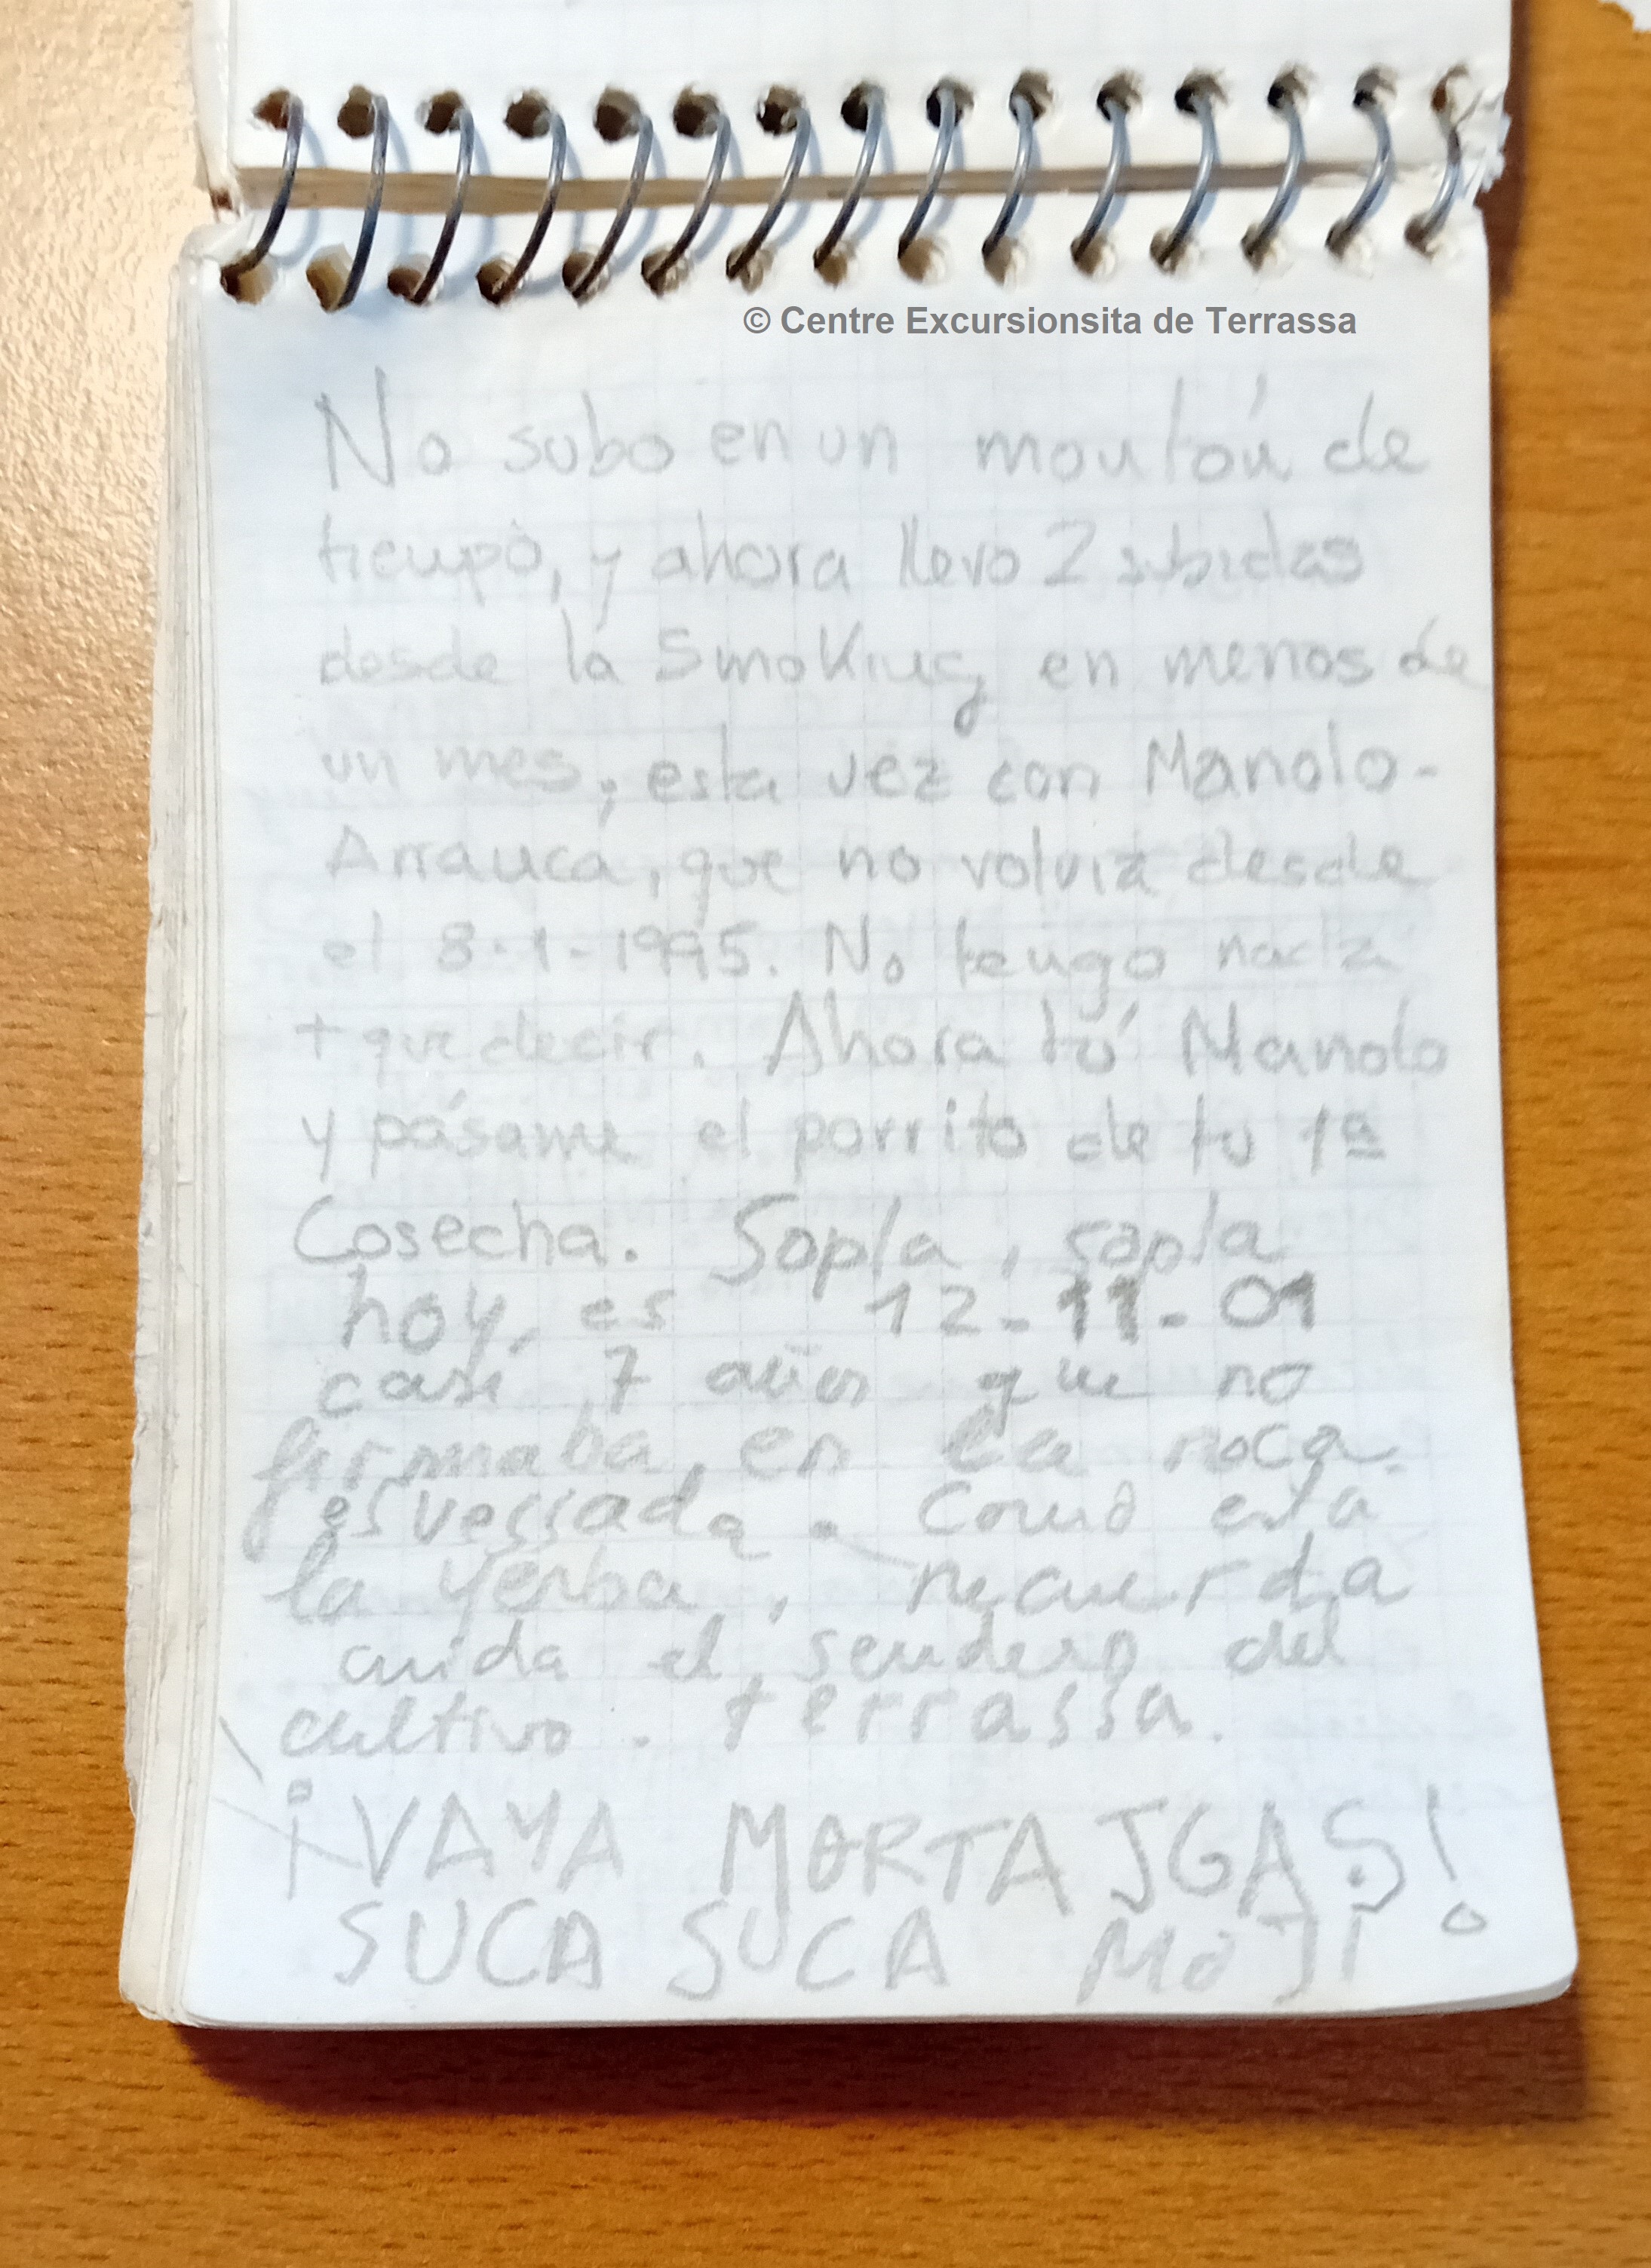 © Centre Excursionsita de Terrassa
No subo en un montón de
tiempo, y ahora llevo 2 subidas
desde la Smoking en menos de
un mes, esta vez con Manolo-
Arrauca, que no volvía desde
el 8-1-1995. No tengo nada
+ que decir. Ahora tú Manolo
y pásame el porrito de tu 1ª
Cosecha. Sopla, sopla
hoy, es 12-11-01
casi 7 años que no
firmaba en la roca
esvessada. Como esta
la yerba, recuerda
cuida el sendero del
cultivo. terrassa.
¡VAYA MORTA JGAS!
SUCA SUCA MOJI